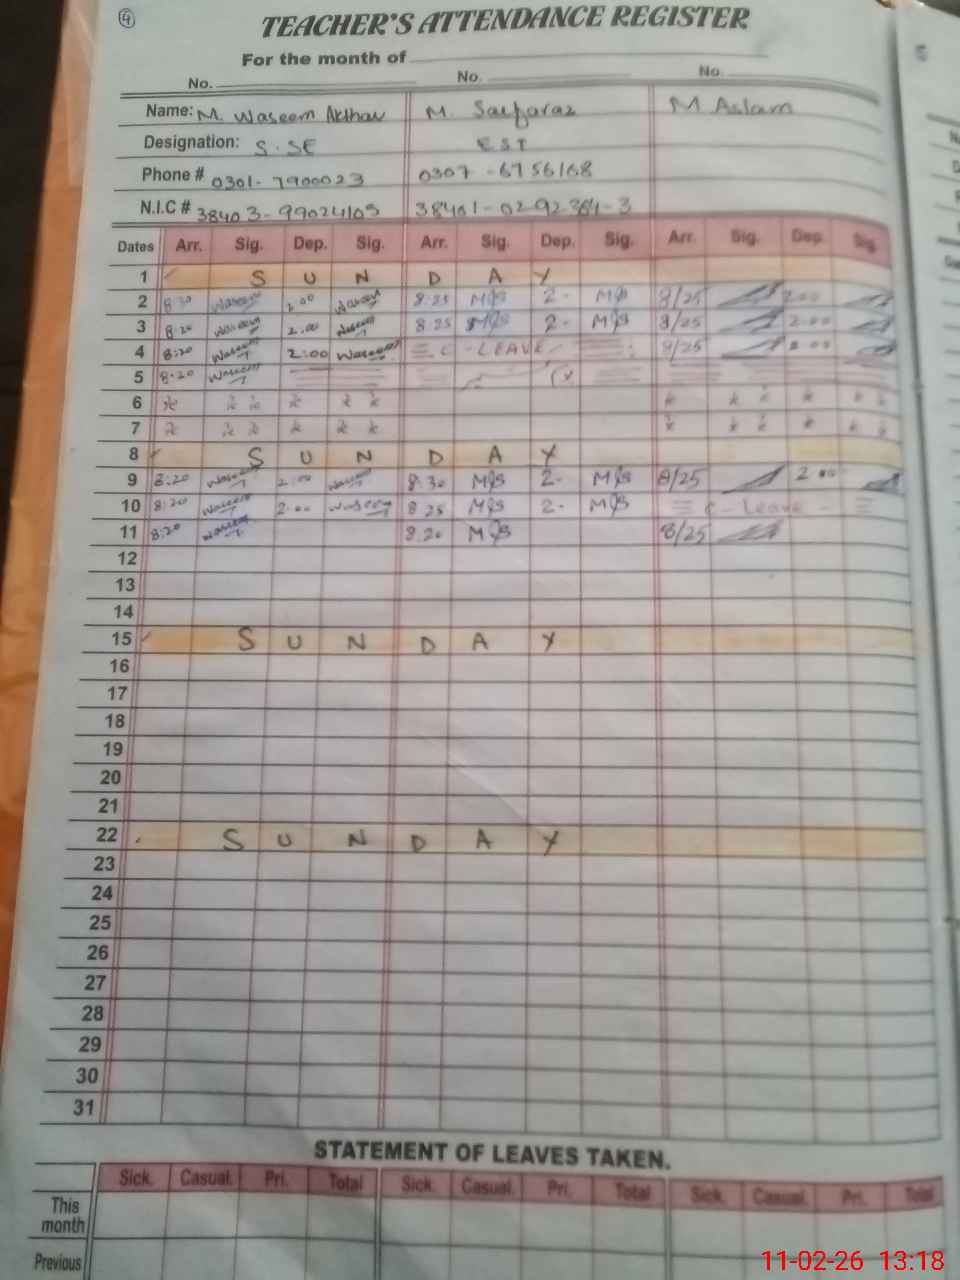 4
TEACHER'S ATTENDANCE REGISTER
For the month of
No. No. No.
Name: M. Waseem Akthar M. Sarfaraz M Aslam
Designation: S.SE EST
Phone # 0301-7900023 0307-6756168
N.I.C # 38403-99024105 38401-0292384-3
Dates Arr. Sig. Dep. Sig. Arr. Sig. Dep. Sig. Arr. Sig. Dep. Sig.
1 S U N D A Y
2 8:30 Waseem 2:00 Waseem 8:25 M/S 2- M/S 8/25 2:00
3 8:20 Waseem 2:00 Waseem 8:25 M/S 2- M/S 8/25 2:00
4 8:20 Waseem 2:00 Waseem C-LEAVE 8/25 2:00
5 8:20 Waseem
6
7
8 S U N D A Y
9 8:20 Waseem 2:00 Waseem 8:30 M/S 2- M/S 8/25 2:00
10 8:20 Waseem 2:00 Waseem 8:25 M/S 2- M/S C-Leave
11 8:20 Waseem 8:20 M/S 8/25
12
13
14
15 S U N D A Y
16
17
18
19
20
21
22 S U N D A Y
23
24
25
26
27
28
29
30
31
STATEMENT OF LEAVES TAKEN.
Sick. Casual. Pri. Total Sick. Casual. Pri. Total Sick. Casual. Pri. Total
This month
Previous
11-02-26 13:18